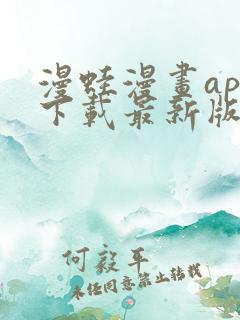 漫蛙漫畫ap
下載最新版
何毅平
未经同意禁止转载